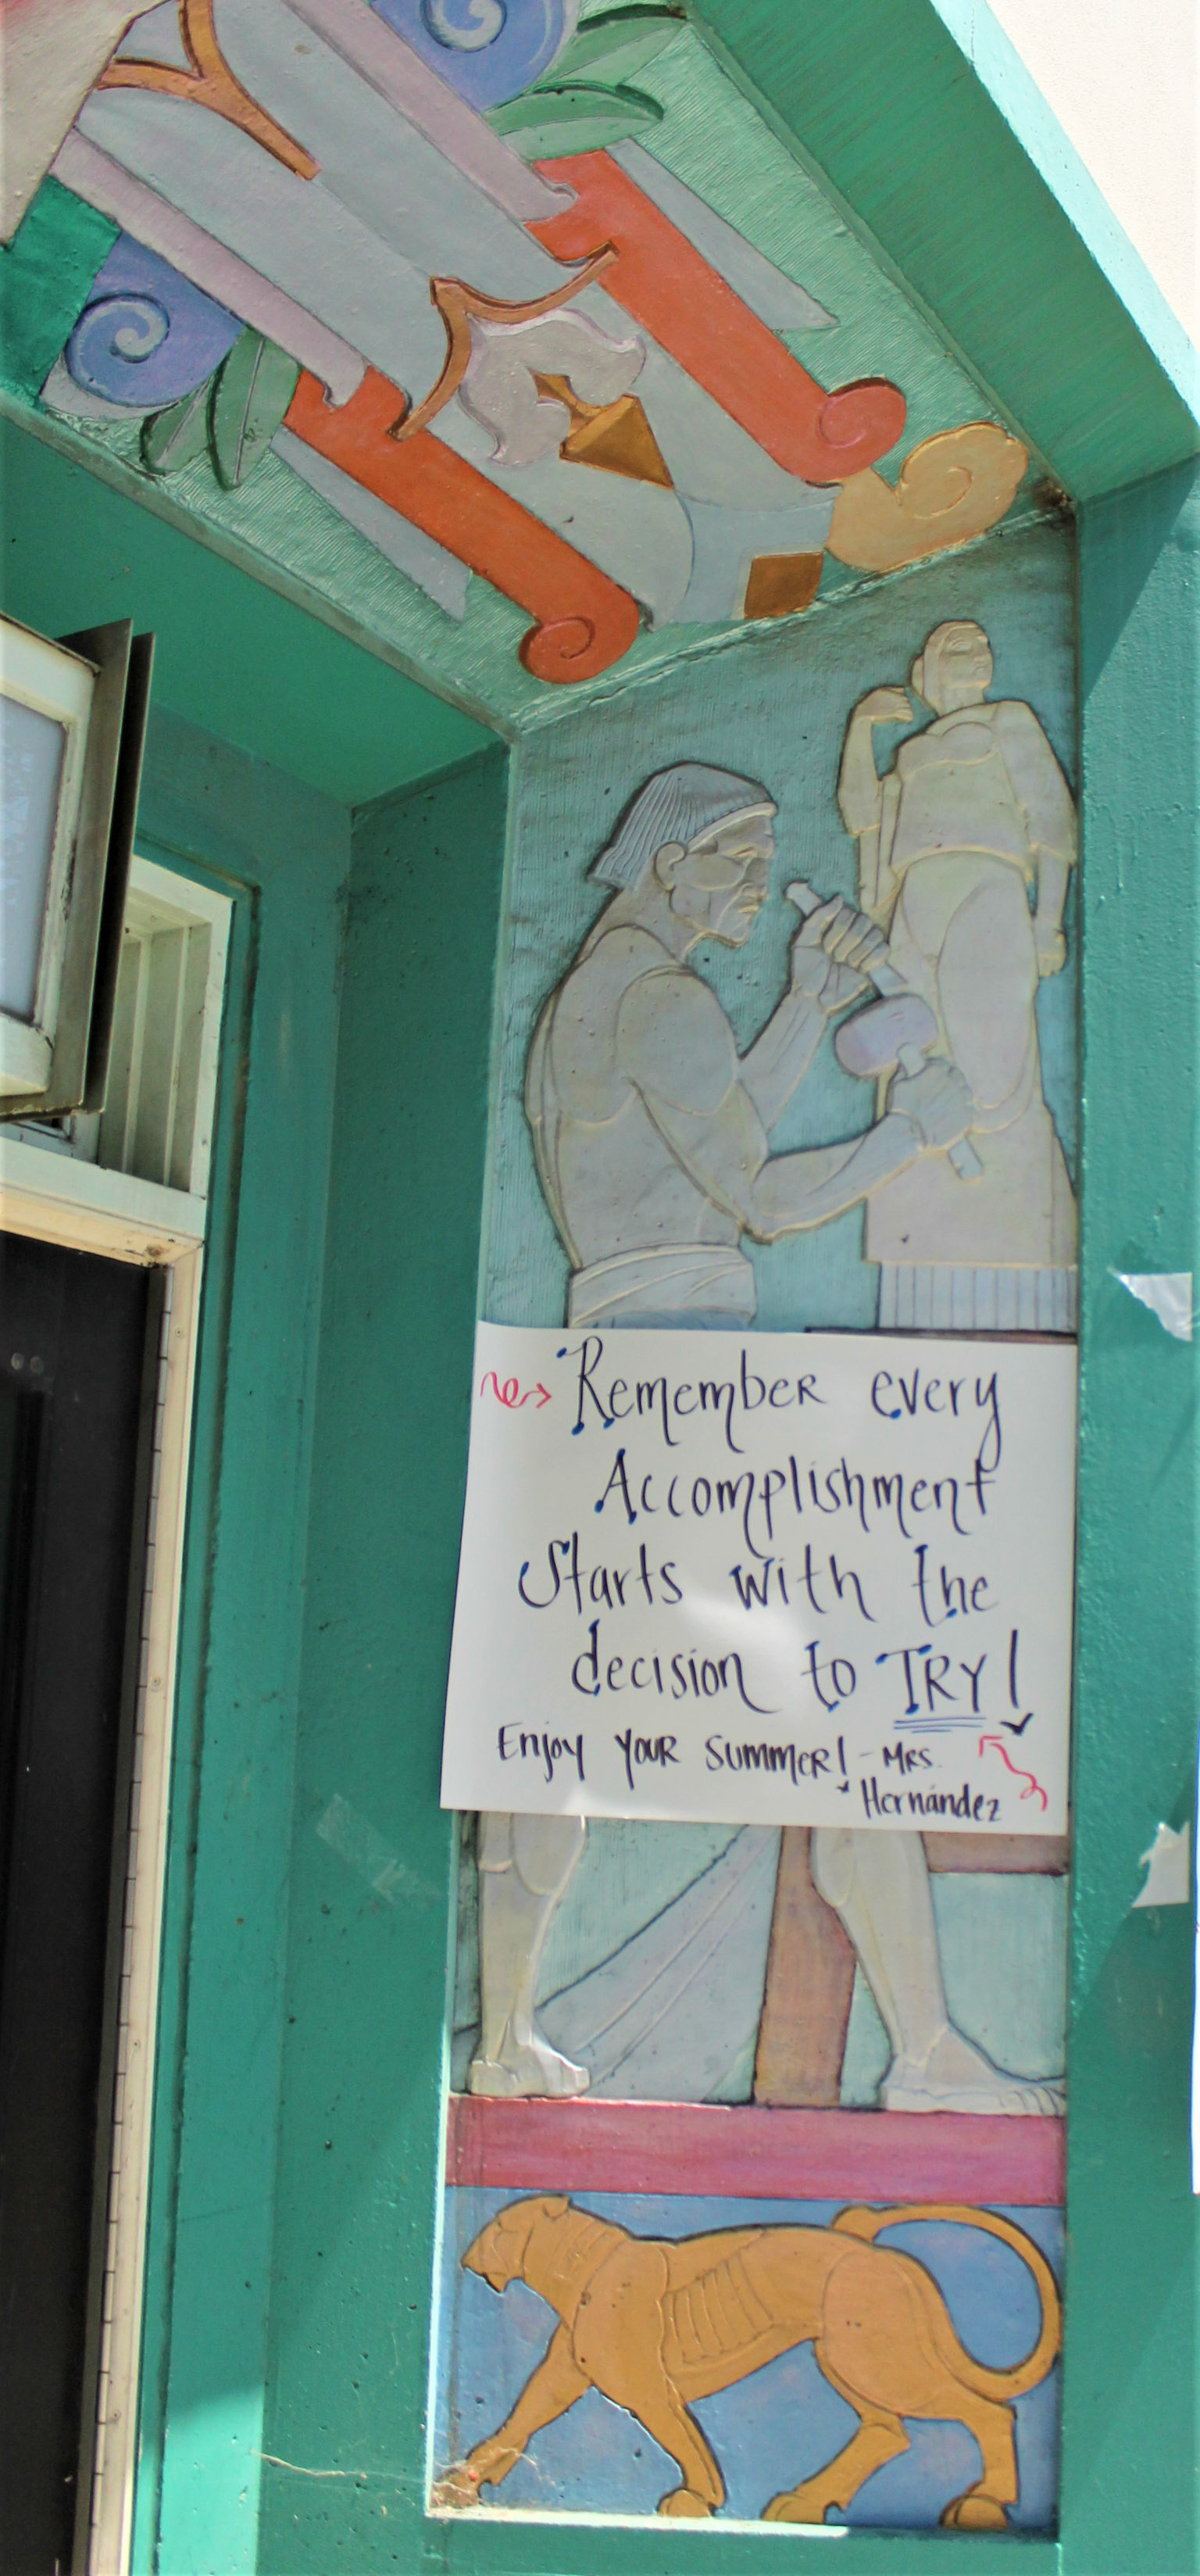 Remember every
Accomplishment
Starts with the
decision to TRY!
Enjoy your summer! - Mrs.
Hernández